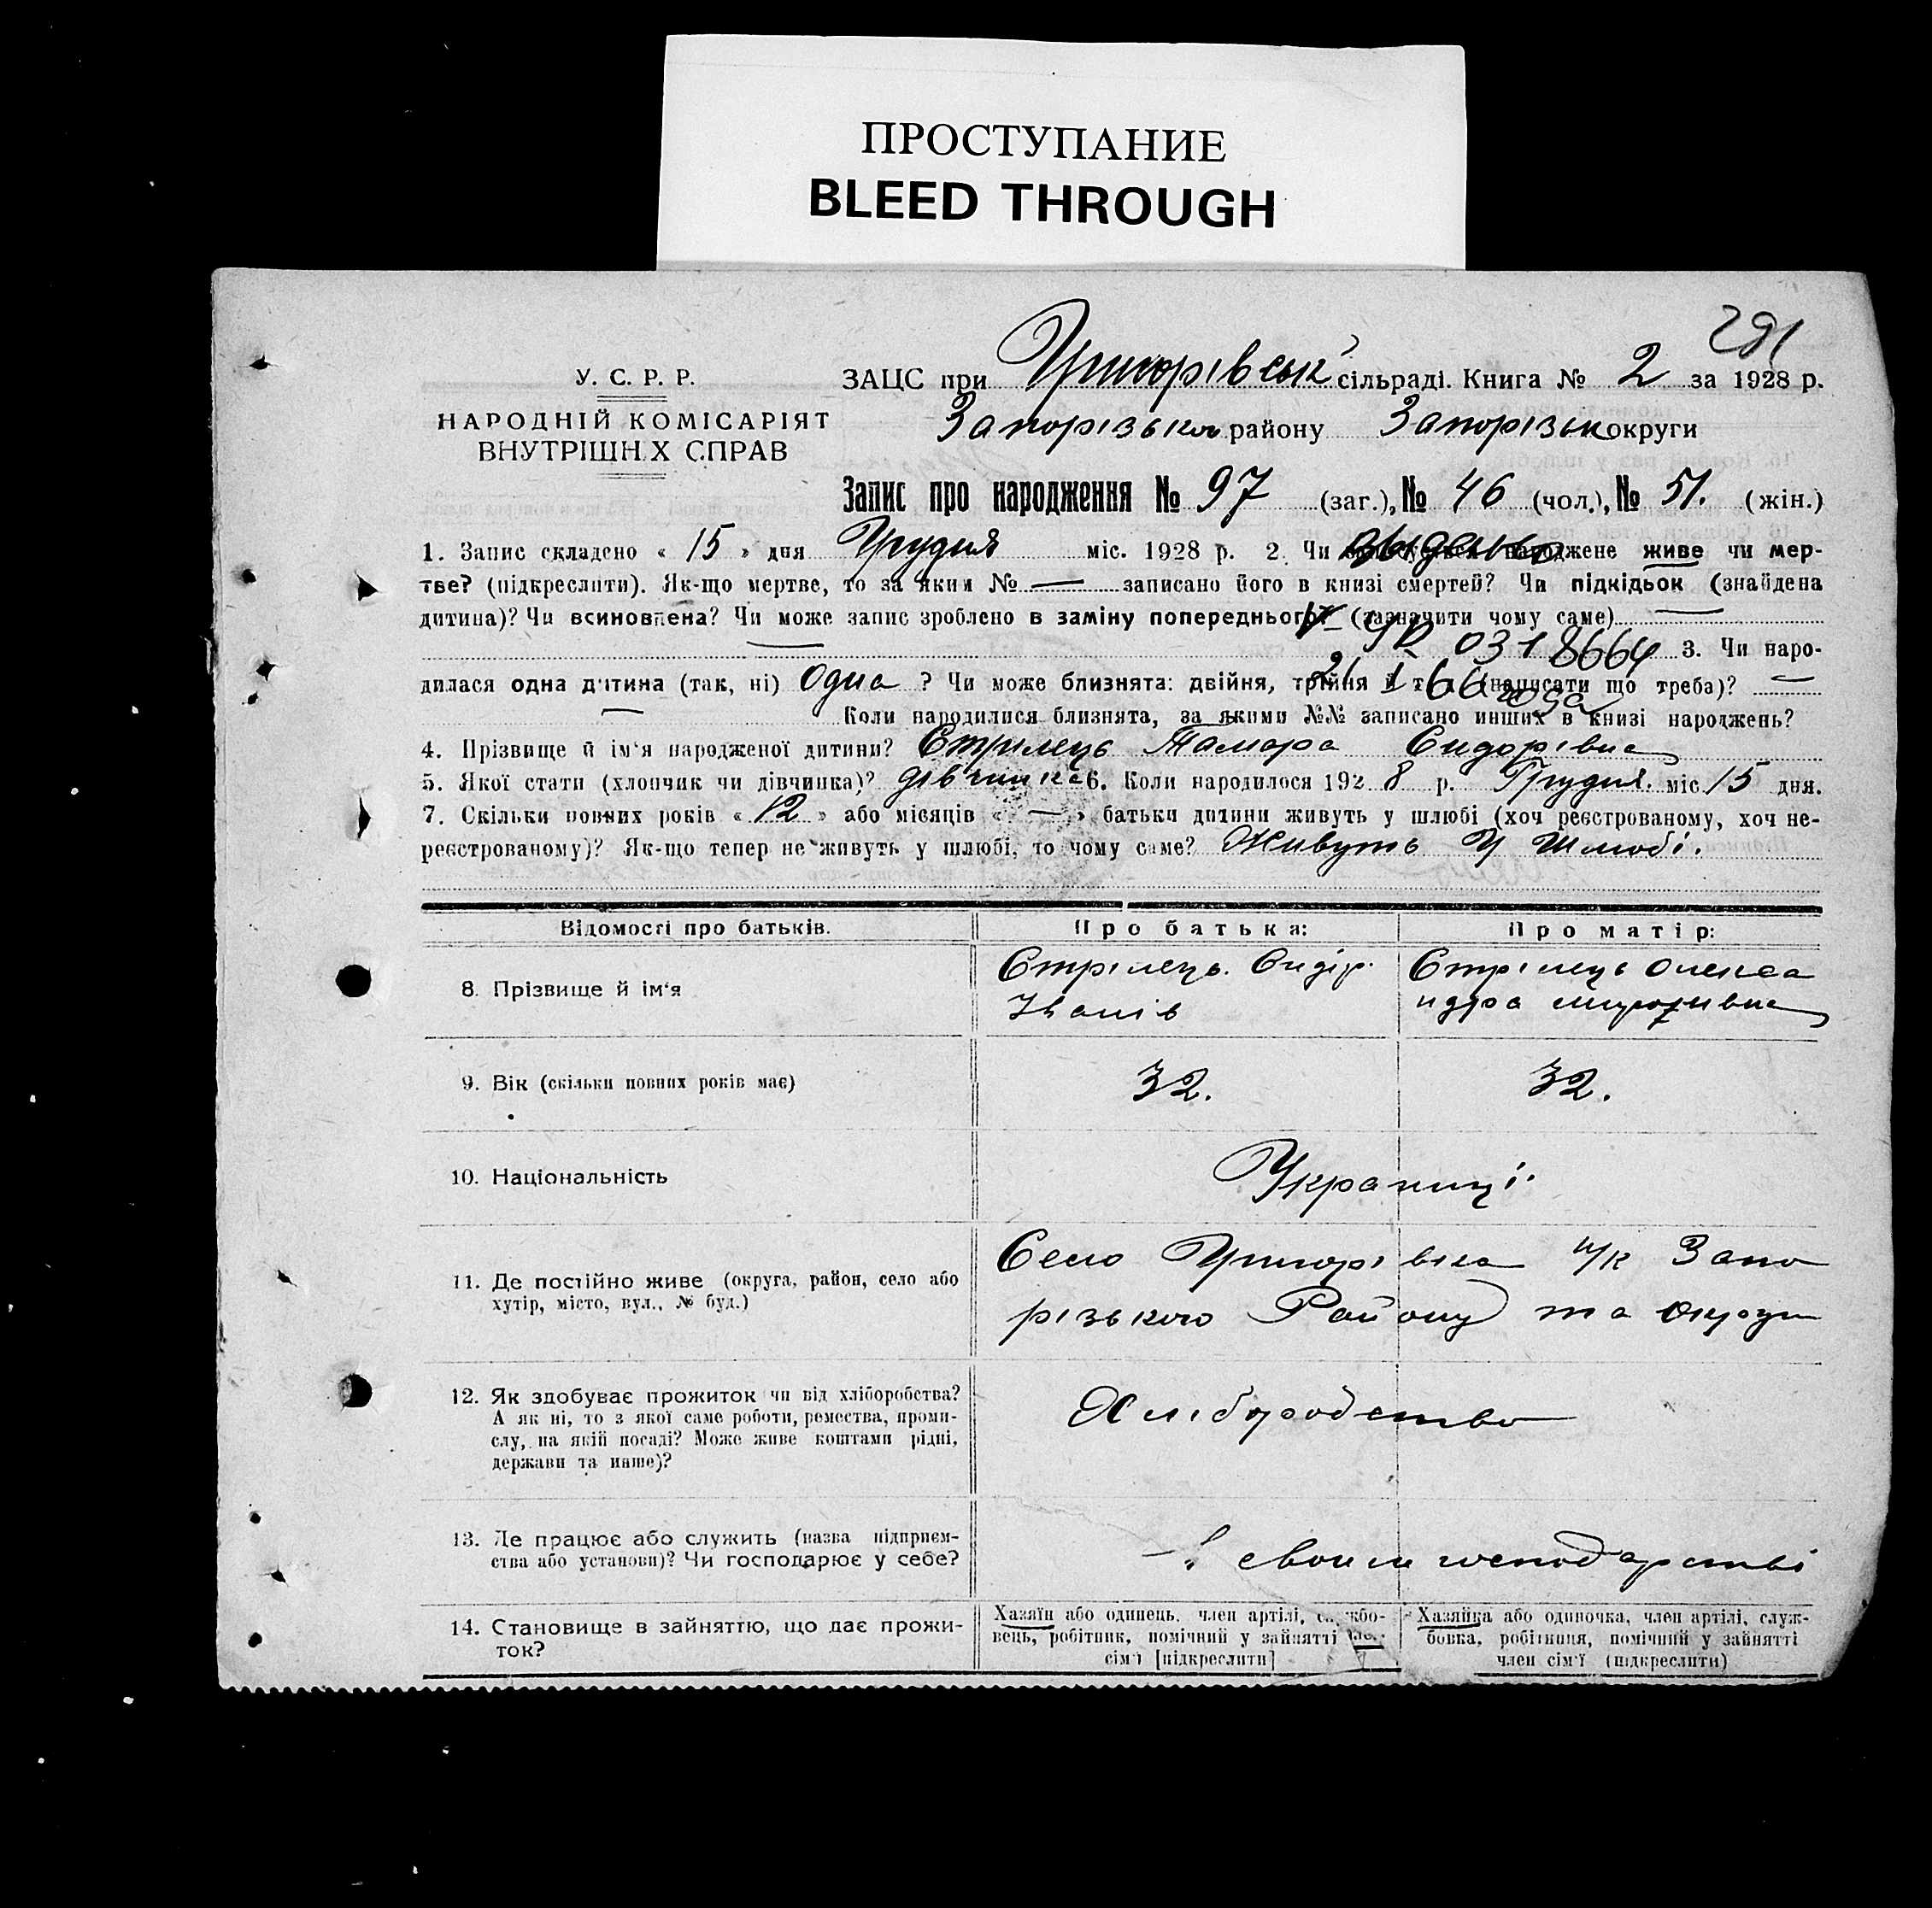 ПРОСТУПАНИЕ
BLEED THROUGH
281
У. С. Р. Р.
НАРОДНІЙ КОМІСАРІЯТ
ВНУТРІШН Х СПРАВ
ЗАЦС при Григорівськ сільраді. Книга № 2 за 1928 р.
Запорізького району Запорізьк округи
Запис про народження № 97 (заг.), № 46 (чол.), № 51. (жін.)
1. Запис складено « 15 » дня Грудня міс. 1928 р. 2. Чи народжене живе чи мер-
тве? (підкреслити). Як-що мертве, то за яким № — записано його в книзі смертей? Чи підкідьок (знайдена
дитина)? Чи всиновлена? Чи може запис зроблено в заміну попереднього? (зазначити чому саме) —
— 3. Чи наро-
дилася одна дитина (так, ні) Одна ? Чи може близнята: двійня, трійня й т. д. (написати що треба)? —
— Коли народилися близнята, за якими №№ записано инших в книзі народжень?
выдано
IV-ЯР 0318664
21 1 66 года
4. Прізвище й ім'я народженої дитини? Стрілець Тамара Сидорівна
5. Якої стати (хлопчик чи дівчинка)? дівчинка 6. Коли народилося 1928 р. Грудня. міс. 15 дня.
7. Скільки повних років « 12 » або місяців « — » батьки дитини живуть у шлюбі (хоч реєстрованому, хоч не-
реєстрованому)? Як-що тепер не живуть у шлюбі, то чому саме? Живуть У Шлюбі.
Відомості про батьків.
Про батька:
Про матір:
8. Прізвище й ім'я
Стрілець. Сидір.
Іванів
Стрілець Олекса
ндра
9. Вік (скільки повних років має)
32.
32.
10. Національність
Украинці.
11. Де постійно живе (округа, район, село або
хутір, місто, вул., № буд.)
Село Григорівка н/к Запо
різького Району та округи
12. Як здобуває прожиток чи від хліборобства?
А як ні, то з якої саме роботи, ремества, проми-
слу, на якій посаді? Може живе коштами рідні,
держави та инше)?
Хліборобство
13. Де працює або служить (назва підприєм-
ства або установи)? Чи господарює у себе?
своим господарстві
14. Становище в зайняттю, що дає прожи-
ток?
Хазяїн або одинець, член артілі, службо-
вець, робітник, помічний у зайнятті член
сім'ї [підкреслити]
Хазяйка або одиночка, член артілі, служ-
бовка, робітниця, помічний у зайнятті
член сім'ї (підкреслити)